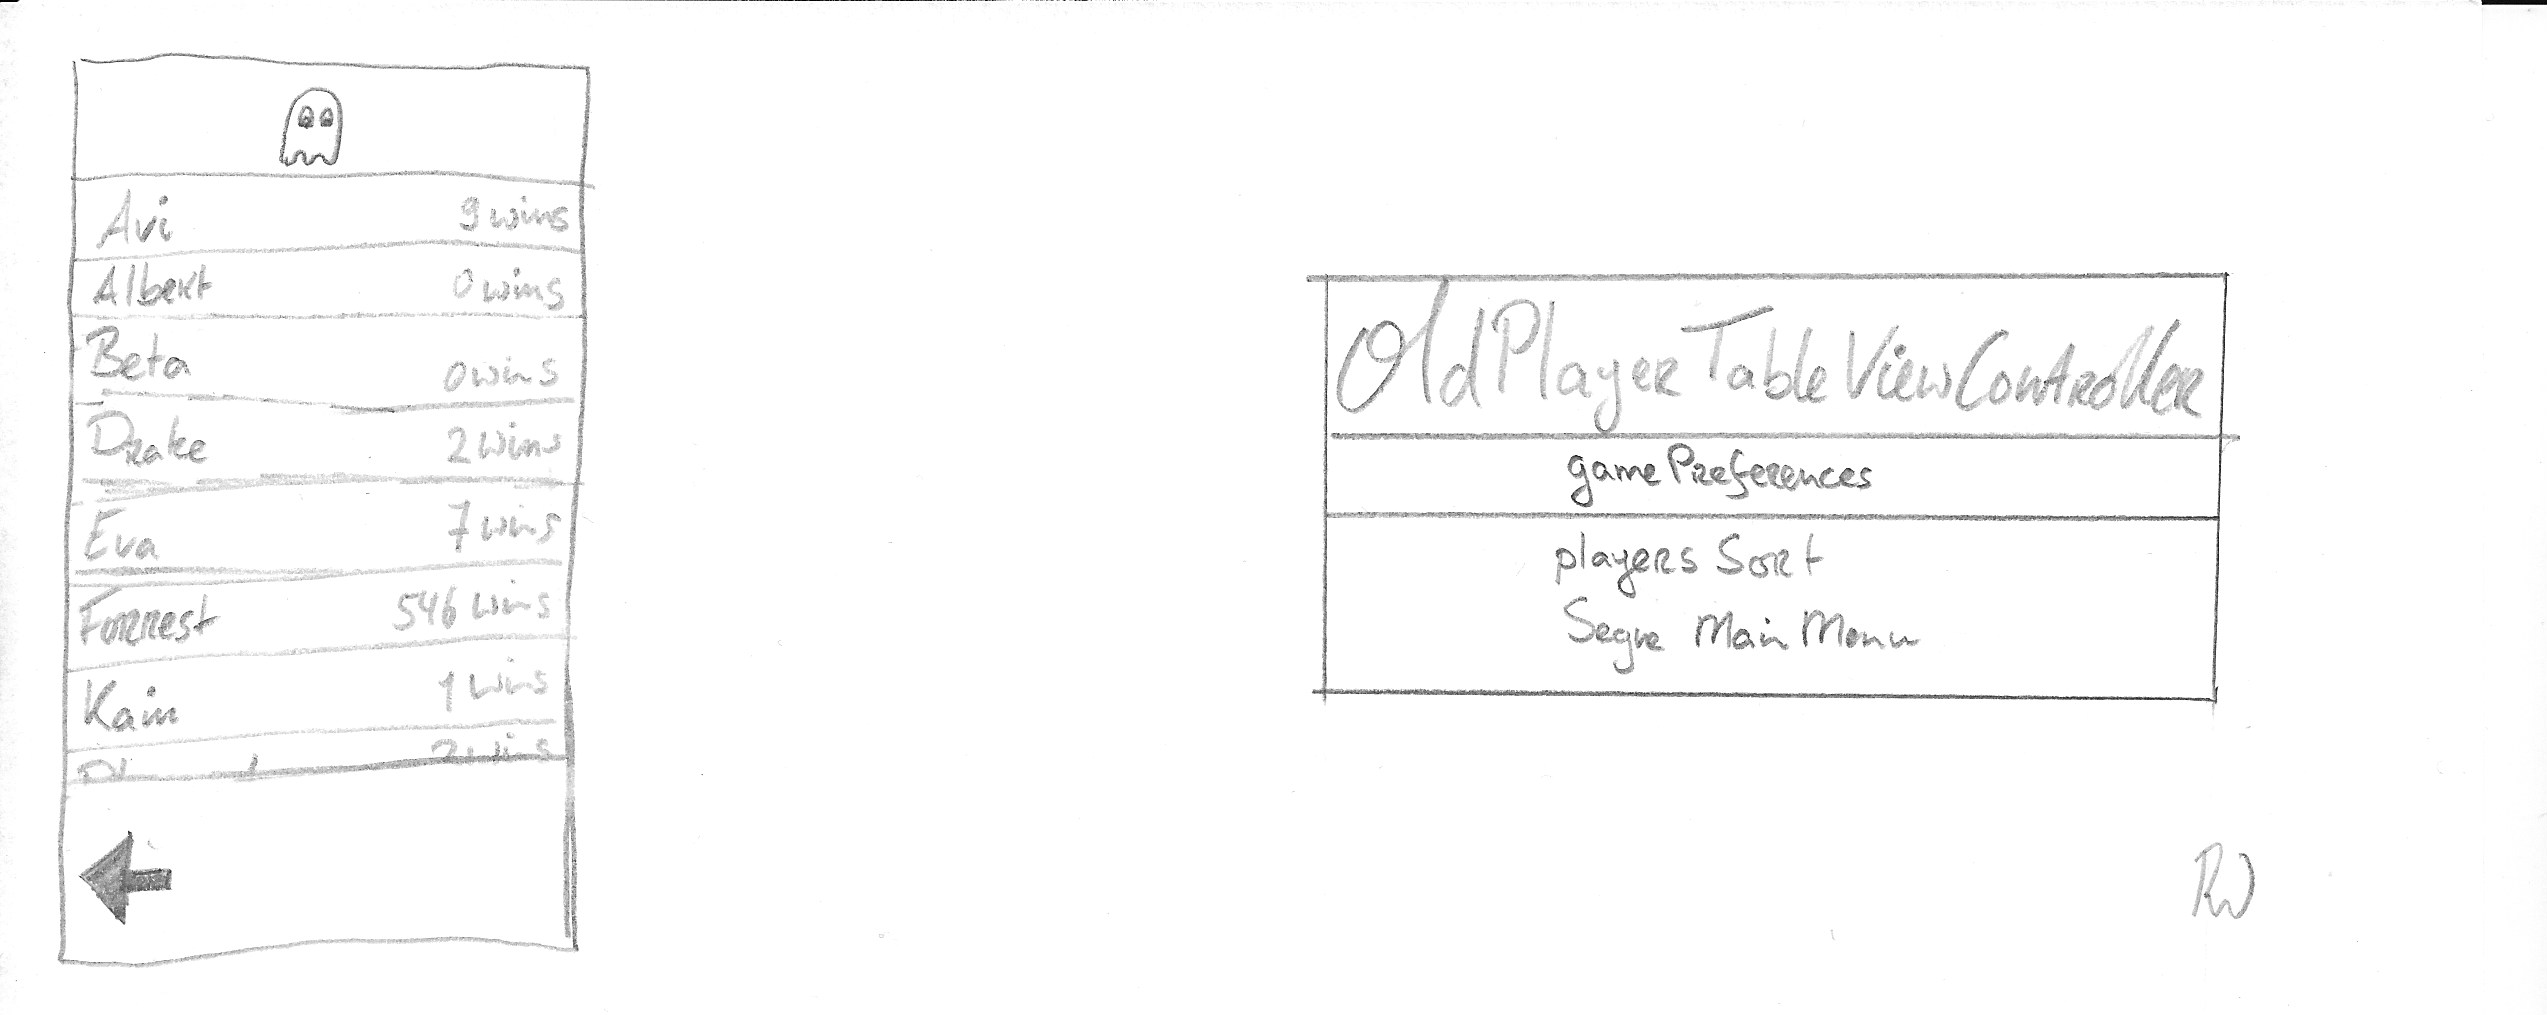 Avi 9 wins
Albert 0 wins
Beta 0 wins
Drake 2 wins
Eva 7 wins
Forrest 546 wins
Kain 1 wins
2 wins
OldPlayerTableViewController
gamePreferences
players Sort
Segue Main Menu
RW